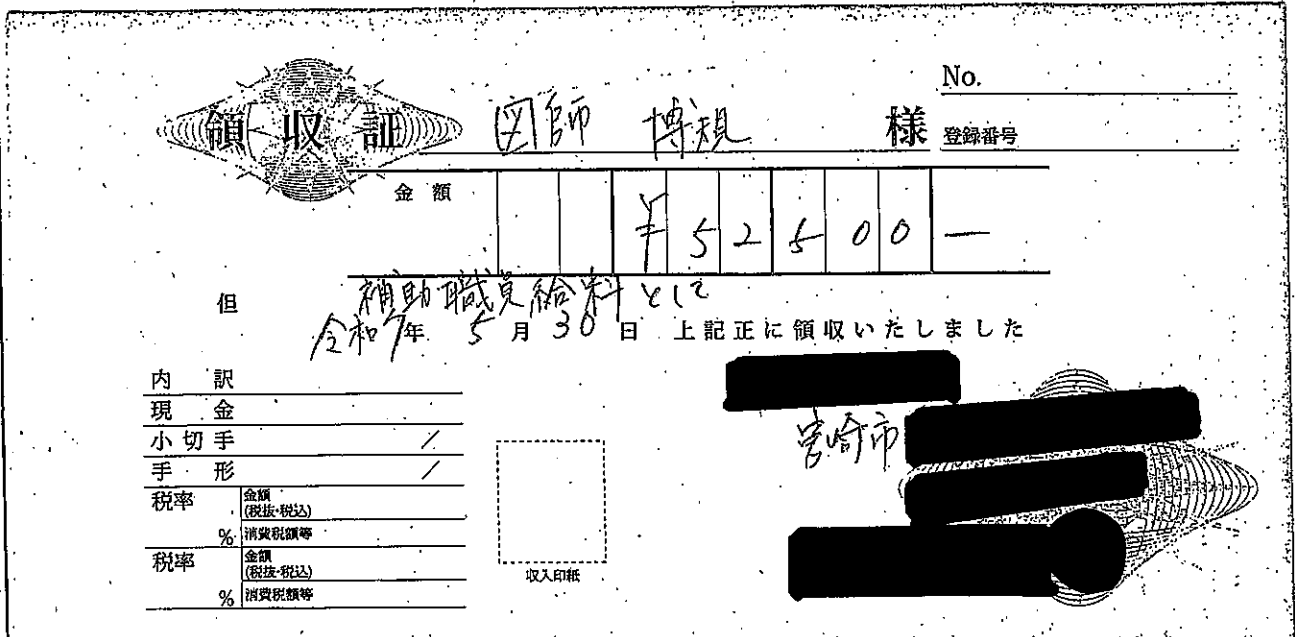 No.
領収証 図師 博規 様 登録番号
金額 ¥52500―
但 補助職員給料として
令和7年 5月30日 上記正に領収いたしました
内訳
現金
小切手 /
手形 /
税率 金額(税抜・税込)
% 消費税額等
税率 金額(税抜・税込)
% 消費税額等
収入印紙
宮崎市